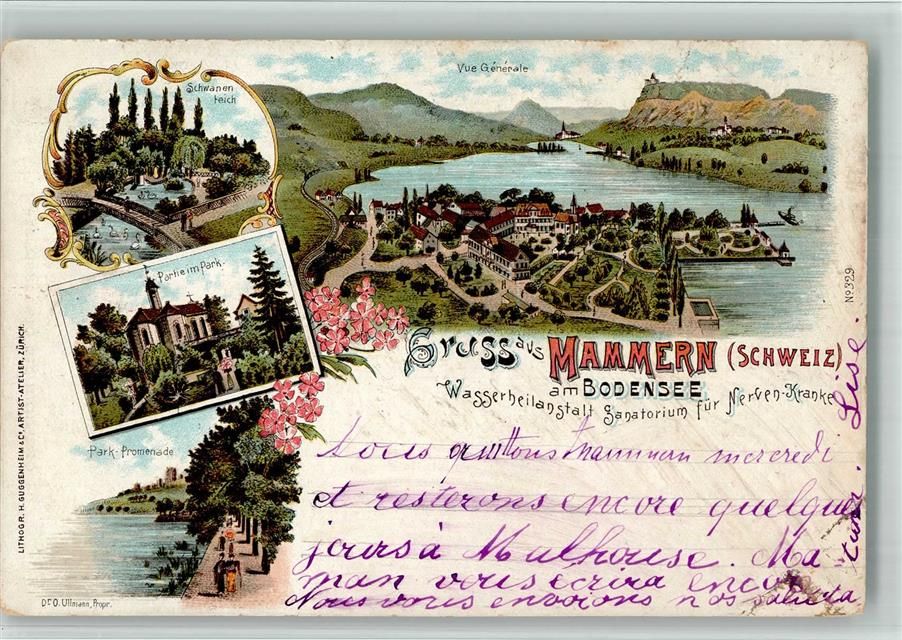 Schwanen
teich
Vue Générale
Partie im Park.
Park-Promenade
Dr. O. Ullmann, Propr.
LITHOGR. H. GUGGENHEIM & Co, ARTIST-ATELIER, ZÜRICH.
No 329
Gruss aus MAMMERN (SCHWEIZ)
am BODENSEE
Wasserheilanstalt Sanatorium für Nerven-Kranke
Nous quittons Mammern mercredi
et resterons encore quelques
jours à Mulhouse. Ma-
man vous écrira encore
Nous vous envoyons nos
Lise